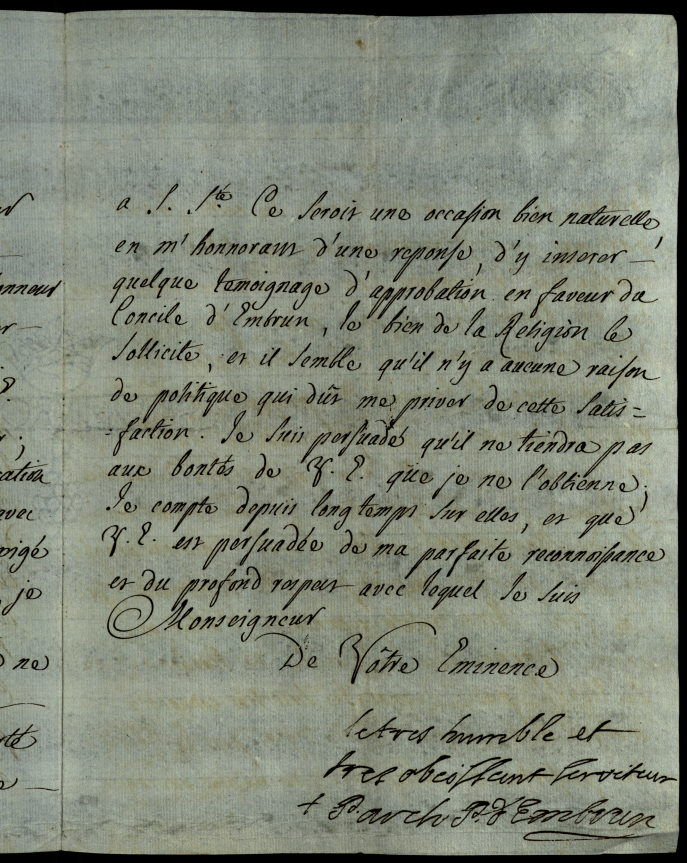 a S. Ste. Ce seroit une occasion bien naturelle,
en m'honnorant d'une reponse, d'y inserer —
quelque temoignage d'approbation en faveur du
Concile d'Embrun, le bien de la Religion le
sollicite, et il semble qu'il n'y a aucune raison
de politique qui dût me priver de cette satis=
=faction. Je suis persuadé qu'il ne tiendra pas
aux bontés de V. E. que je ne l'obtienne;
Je compte depuis longtemps sur elles, et que
V. E. est persuadée de ma parfaite reconnoissance
et du profond respect avec lequel Je suis
Monseigneur
De Vôtre Eminence
le tres humble et
tres obeissant serviteur
+ P. arch. P. d'Embrun
onneur
ation
avec
je
ne